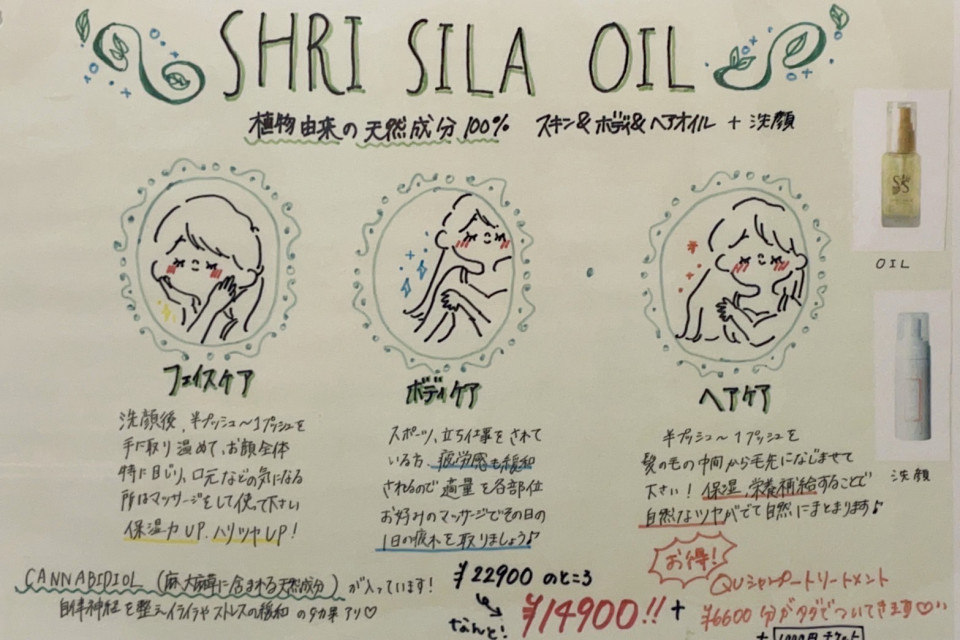 SHRI SILA OIL
植物由来の天然成分100% スキン&ボディ&ヘアオイル + 洗顔
OIL
洗顔
フェイスケア
洗顔後、半プッシュ〜1プッシュを
手に取り温めて、お顔全体
特に目じり、口元などの気になる
所はマッサージをして使って下さい
保湿力UP、ハリツヤUP!
ボディケア
スポーツ、立ち仕事をされて
いる方、疲労感も緩和
されるので適量を各部位
お好みのマッサージでその日の
1日の疲れを取りましょう♪
ヘアケア
半プッシュ〜1プッシュを
髪の毛の中間から毛先になじませて
下さい! 保湿、栄養補給することで
自然なツヤがでて自然にまとまります♪
CANNABIDIOL (麻大麻草に含まれる天然成分)が入っています!
自律神経を整え、イライラやストレスの緩和の効果アリ♡
¥22900のところ
なんと! ¥14900!! +
お得!
QUシャンプートリートメント
¥6600分がタダでついてきます♡